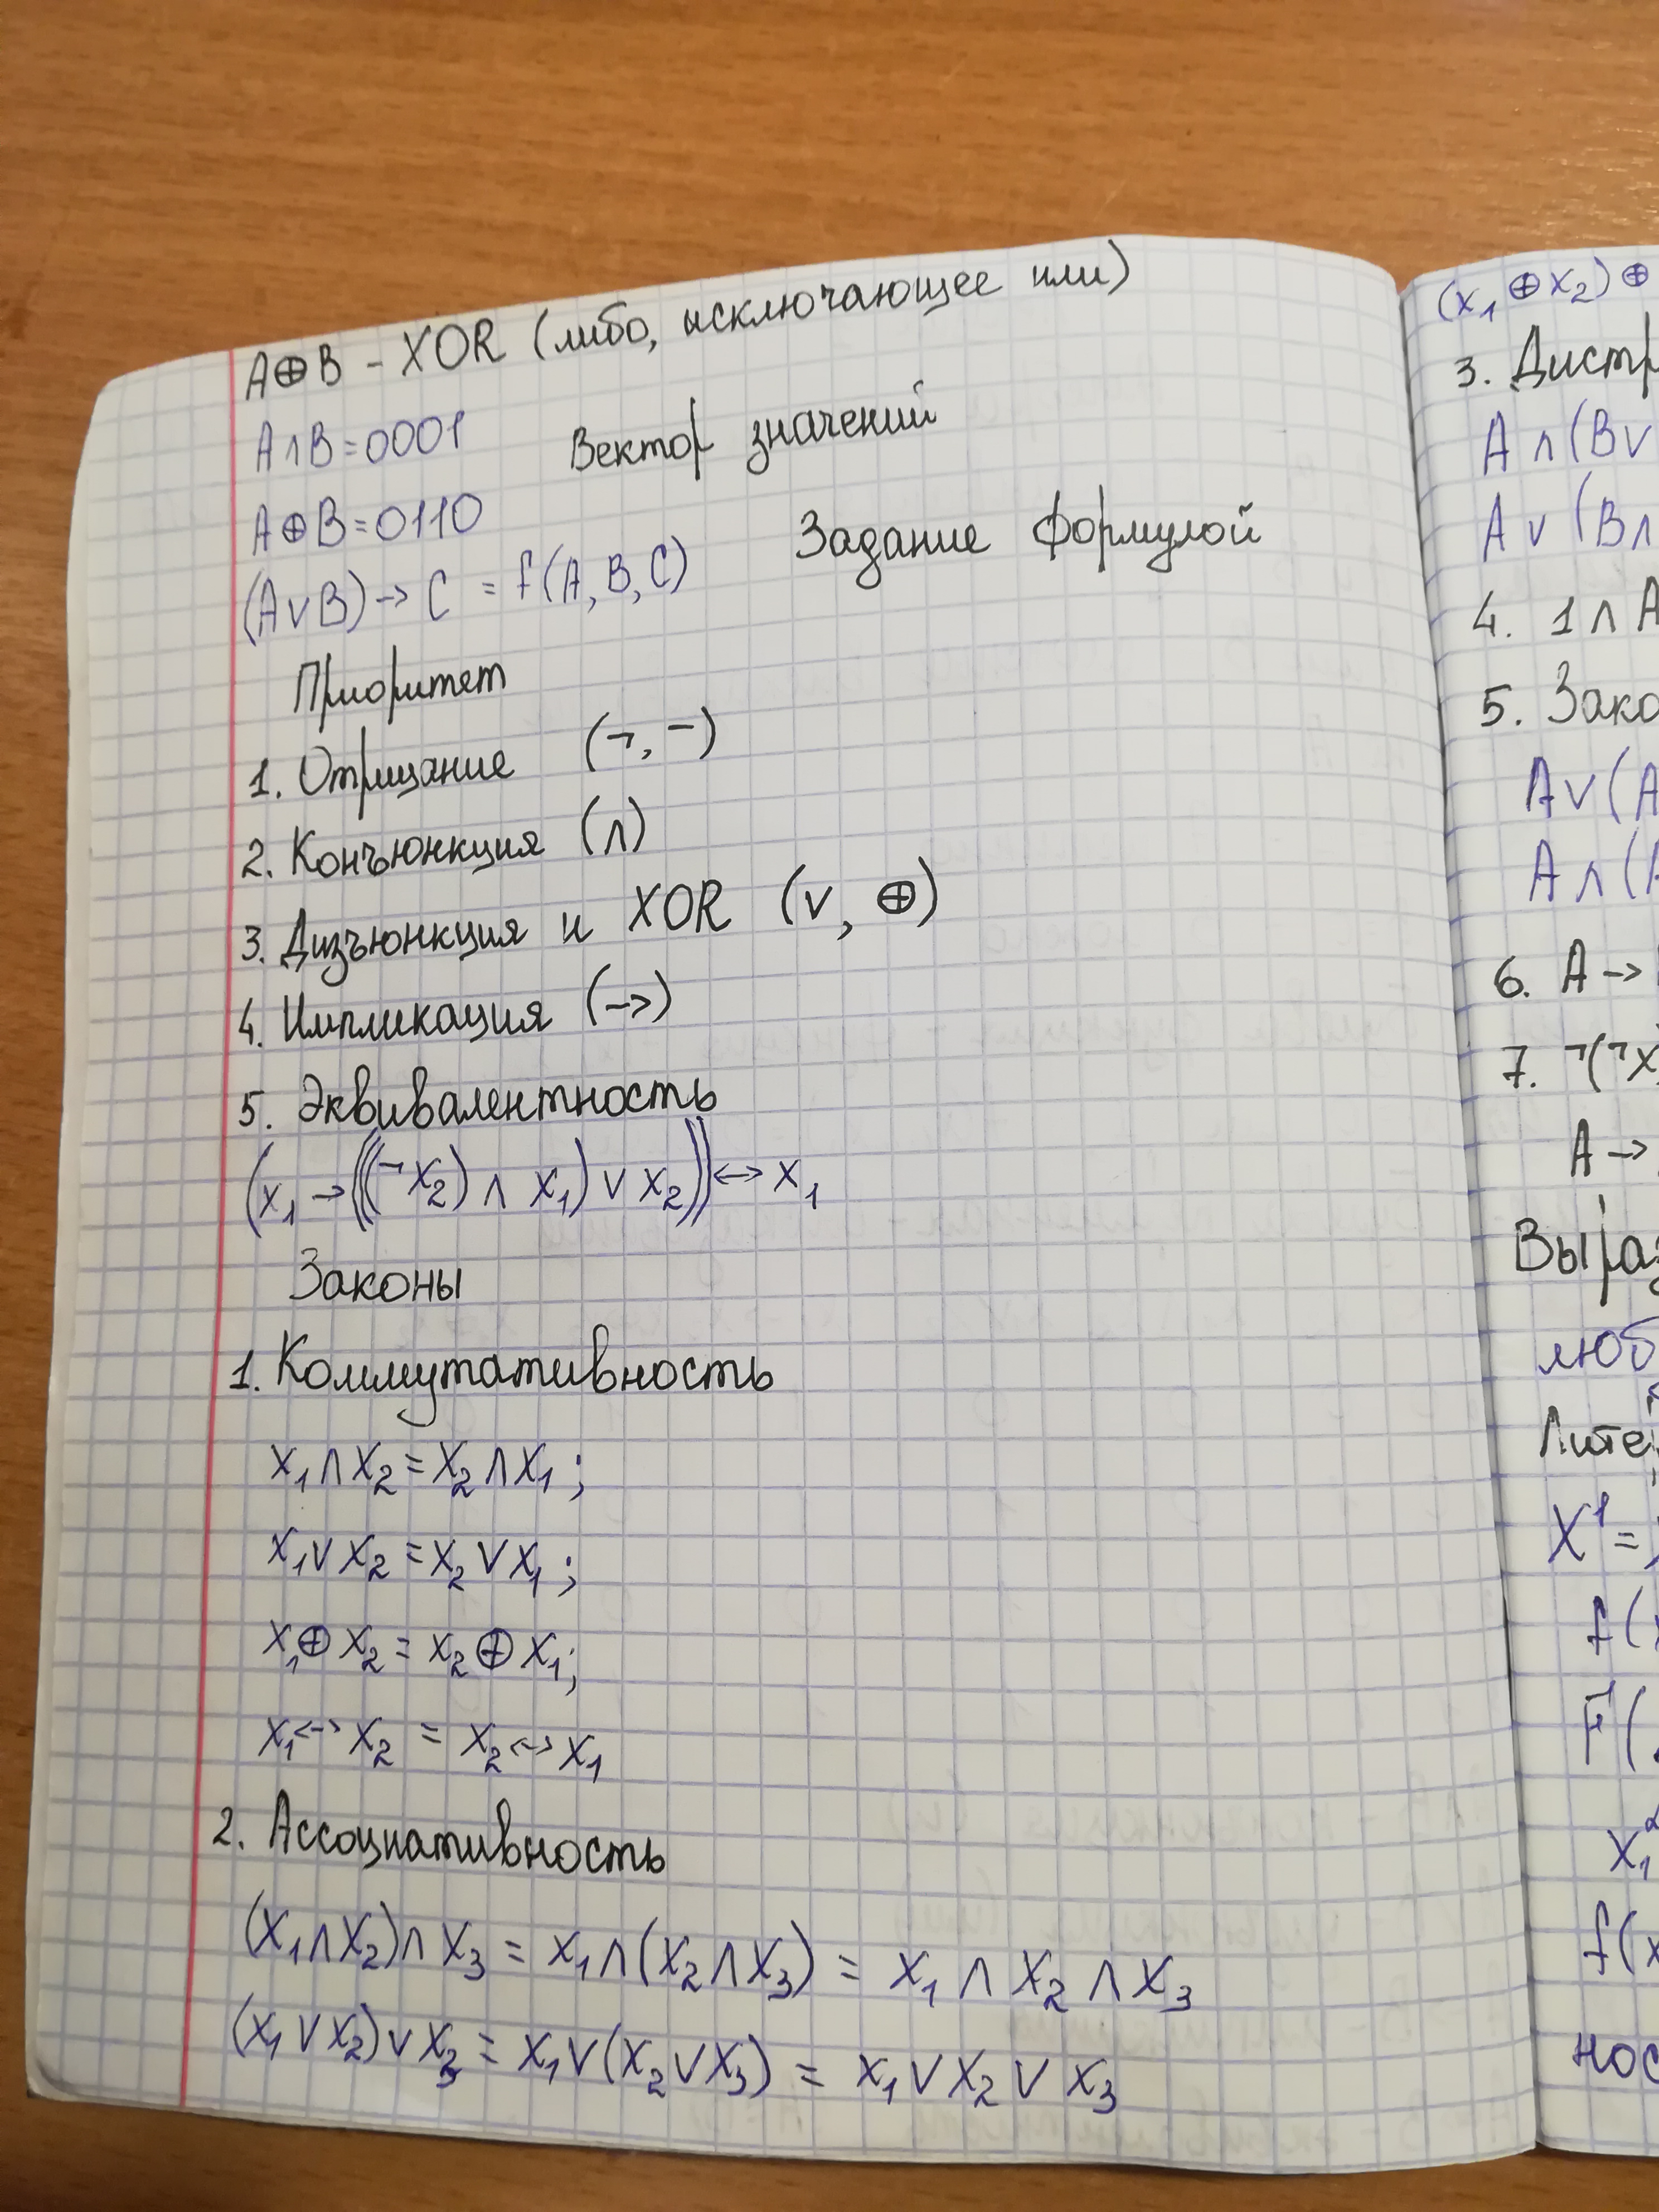 A⊕B - XOR (либо, исключающее или)
A∧B=0001 Вектор значений
A⊕B=0110
(A∨B)→C = f(A, B, C) Задание формулой
Приоритет
1. Отрицание (¬, ‾)
2. Конъюнкция (∧)
3. Дизъюнкция и XOR (∨, ⊕)
4. Импликация (→)
5. Эквивалентность
(x₁→(((¬x₂)∧x₁)∨x₂))↔x₁
Законы
1. Коммутативность
x₁∧x₂=x₂∧x₁;
x₁∨x₂=x₂∨x₁;
x₁⊕x₂=x₂⊕x₁;
x₁↔x₂=x₂↔x₁
2. Ассоциативность
(x₁∧x₂)∧x₃=x₁∧(x₂∧x₃)=x₁∧x₂∧x₃
(x₁∨x₂)∨x₃=x₁∨(x₂∨x₃)=x₁∨x₂∨x₃
(x₁⊕x₂)⊕
3. Дистр
A∧(B∨
A∨(B∧
4. 1∧A
5. Зако
A∨(A
A∧(A
6. A→
7. ¬(¬X)
A→
Выраз
люб
Лите
X¹=
f(x
F(
x₁
f(x
нос